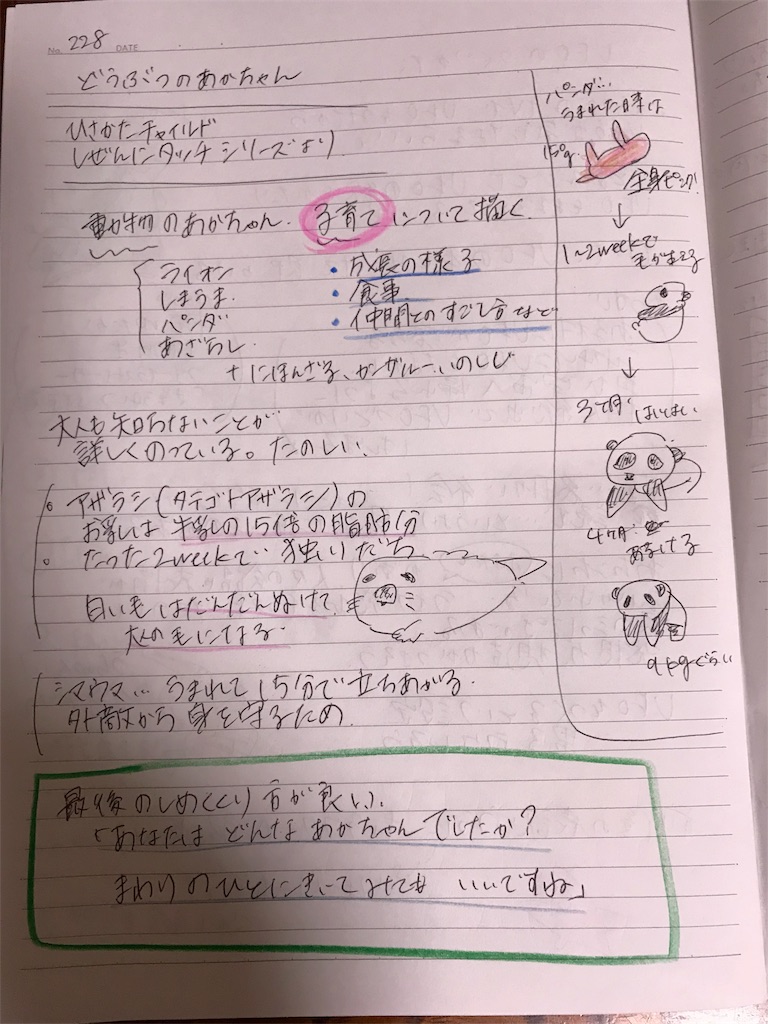 No. 228 DATE
どうぶつのあかちゃん
ひさかたチャイルド
しぜんにタッチシリーズより
動物のあかちゃん. 子育てについて描く.
ライオン
しまうま.
パンダ
あざらし
・成長の様子
・食事
・仲間とのすごし方など
+ にほんざる、カンガルー、いのしし
大人も知らないことが
詳しくのっている。たのしい.
。アザラシ(タテゴトアザラシ)の
お乳は牛乳の15倍の脂肪分
。たった2weekで 独りだち
白い毛はだんだんぬけて
大人の毛になる
シマウマ… うまれて15分で立ちあがる.
外敵から身を守るため
最後のしめくくり方が良い.
「あなたは どんな あかちゃんでしたか?
まわりのひとにきいてみても いいですね」
パンダ…
うまれた時は
150g.
全身ピンク!
↓
1~2weekで
毛がはえる
↓
3ヶ月 はいはい
4ヶ月
あるける
9kgぐらい